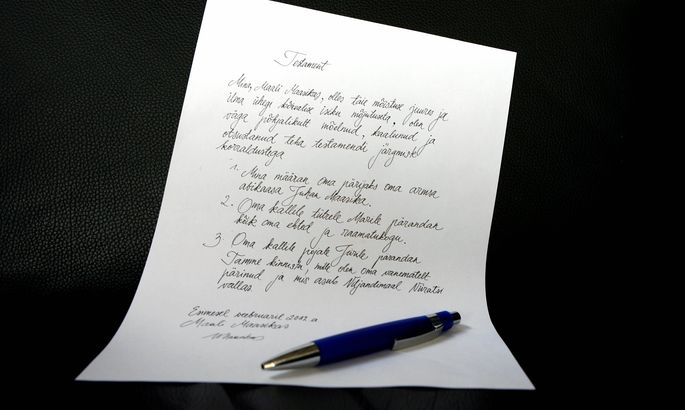 Testament
Mina, Maali Maasikas, olles täie mõistuse juures ja
ilma ühegi kõrvalise isiku mõjutuseta, olen
väga põhjalikult mõelnud, kaalunud ja
otsustanud teha testamendi järgmiste
korraldustega
1. Mina määran oma pärijaks oma armsa
abikaasa Juhan Maasika.
2. Oma kallile tütrele Marile pärandan
kõik oma ehted ja raamatukogu.
3 Oma kallile pojale Jürile pärandan
Tamme kinnistu, mille olen oma vanematelt
pärinud ja mis asub Viljandimaal Viiratsi
vallas
Esimesel veebruaril 2012 a
Maali Maasikas